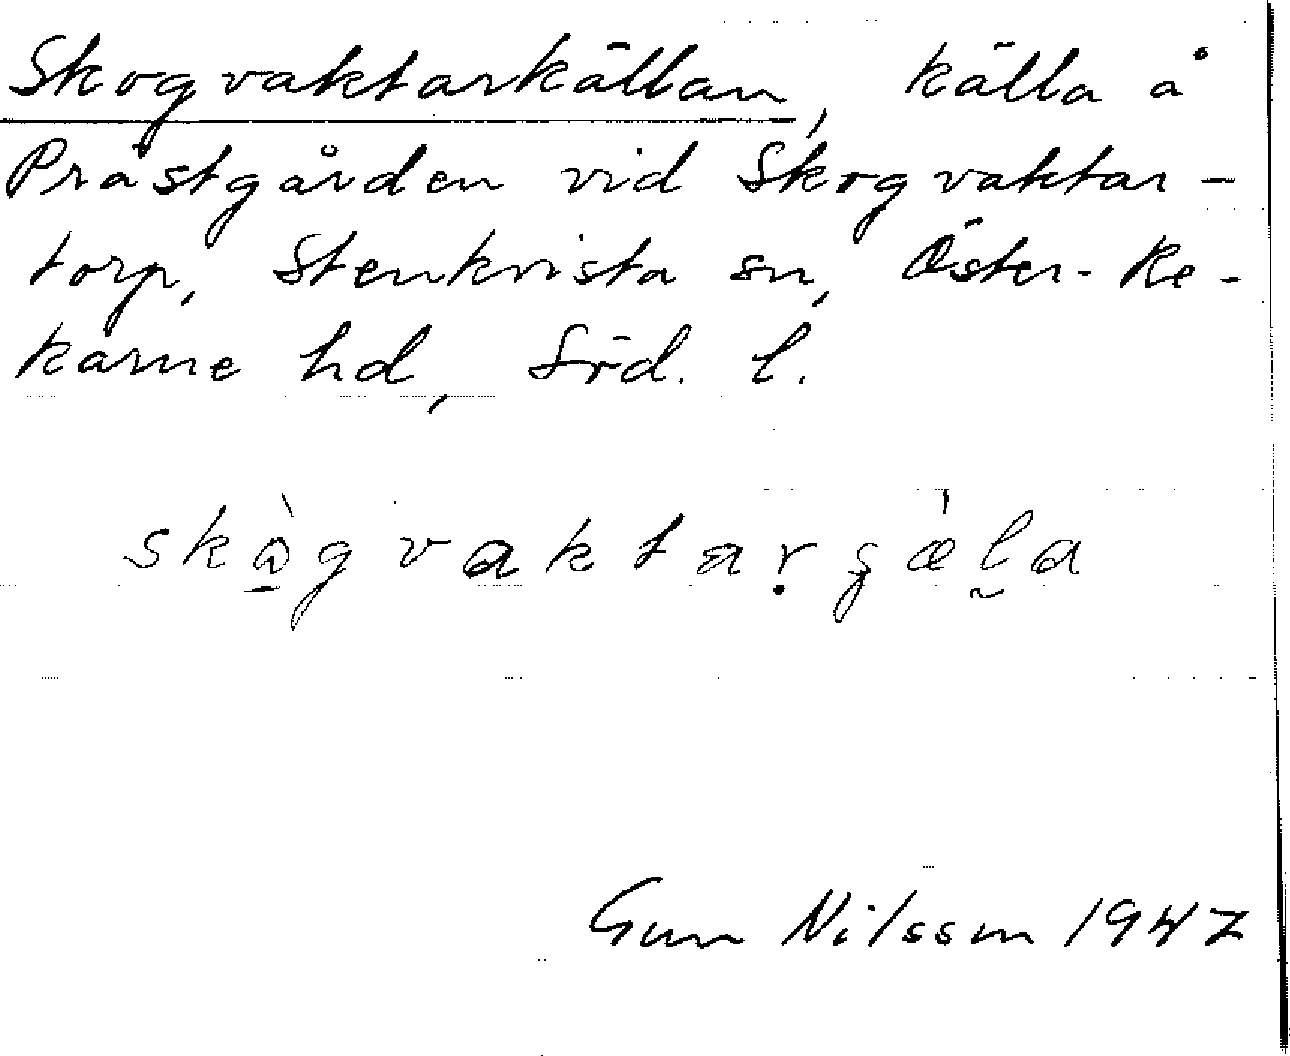 Skogvaktarkällan, källa å
Prästgården vid Skogvaktar-
torp, Stenkvista sn, Öster-Re-
karne hd, Söd. l.
Gun Nilsson 1947